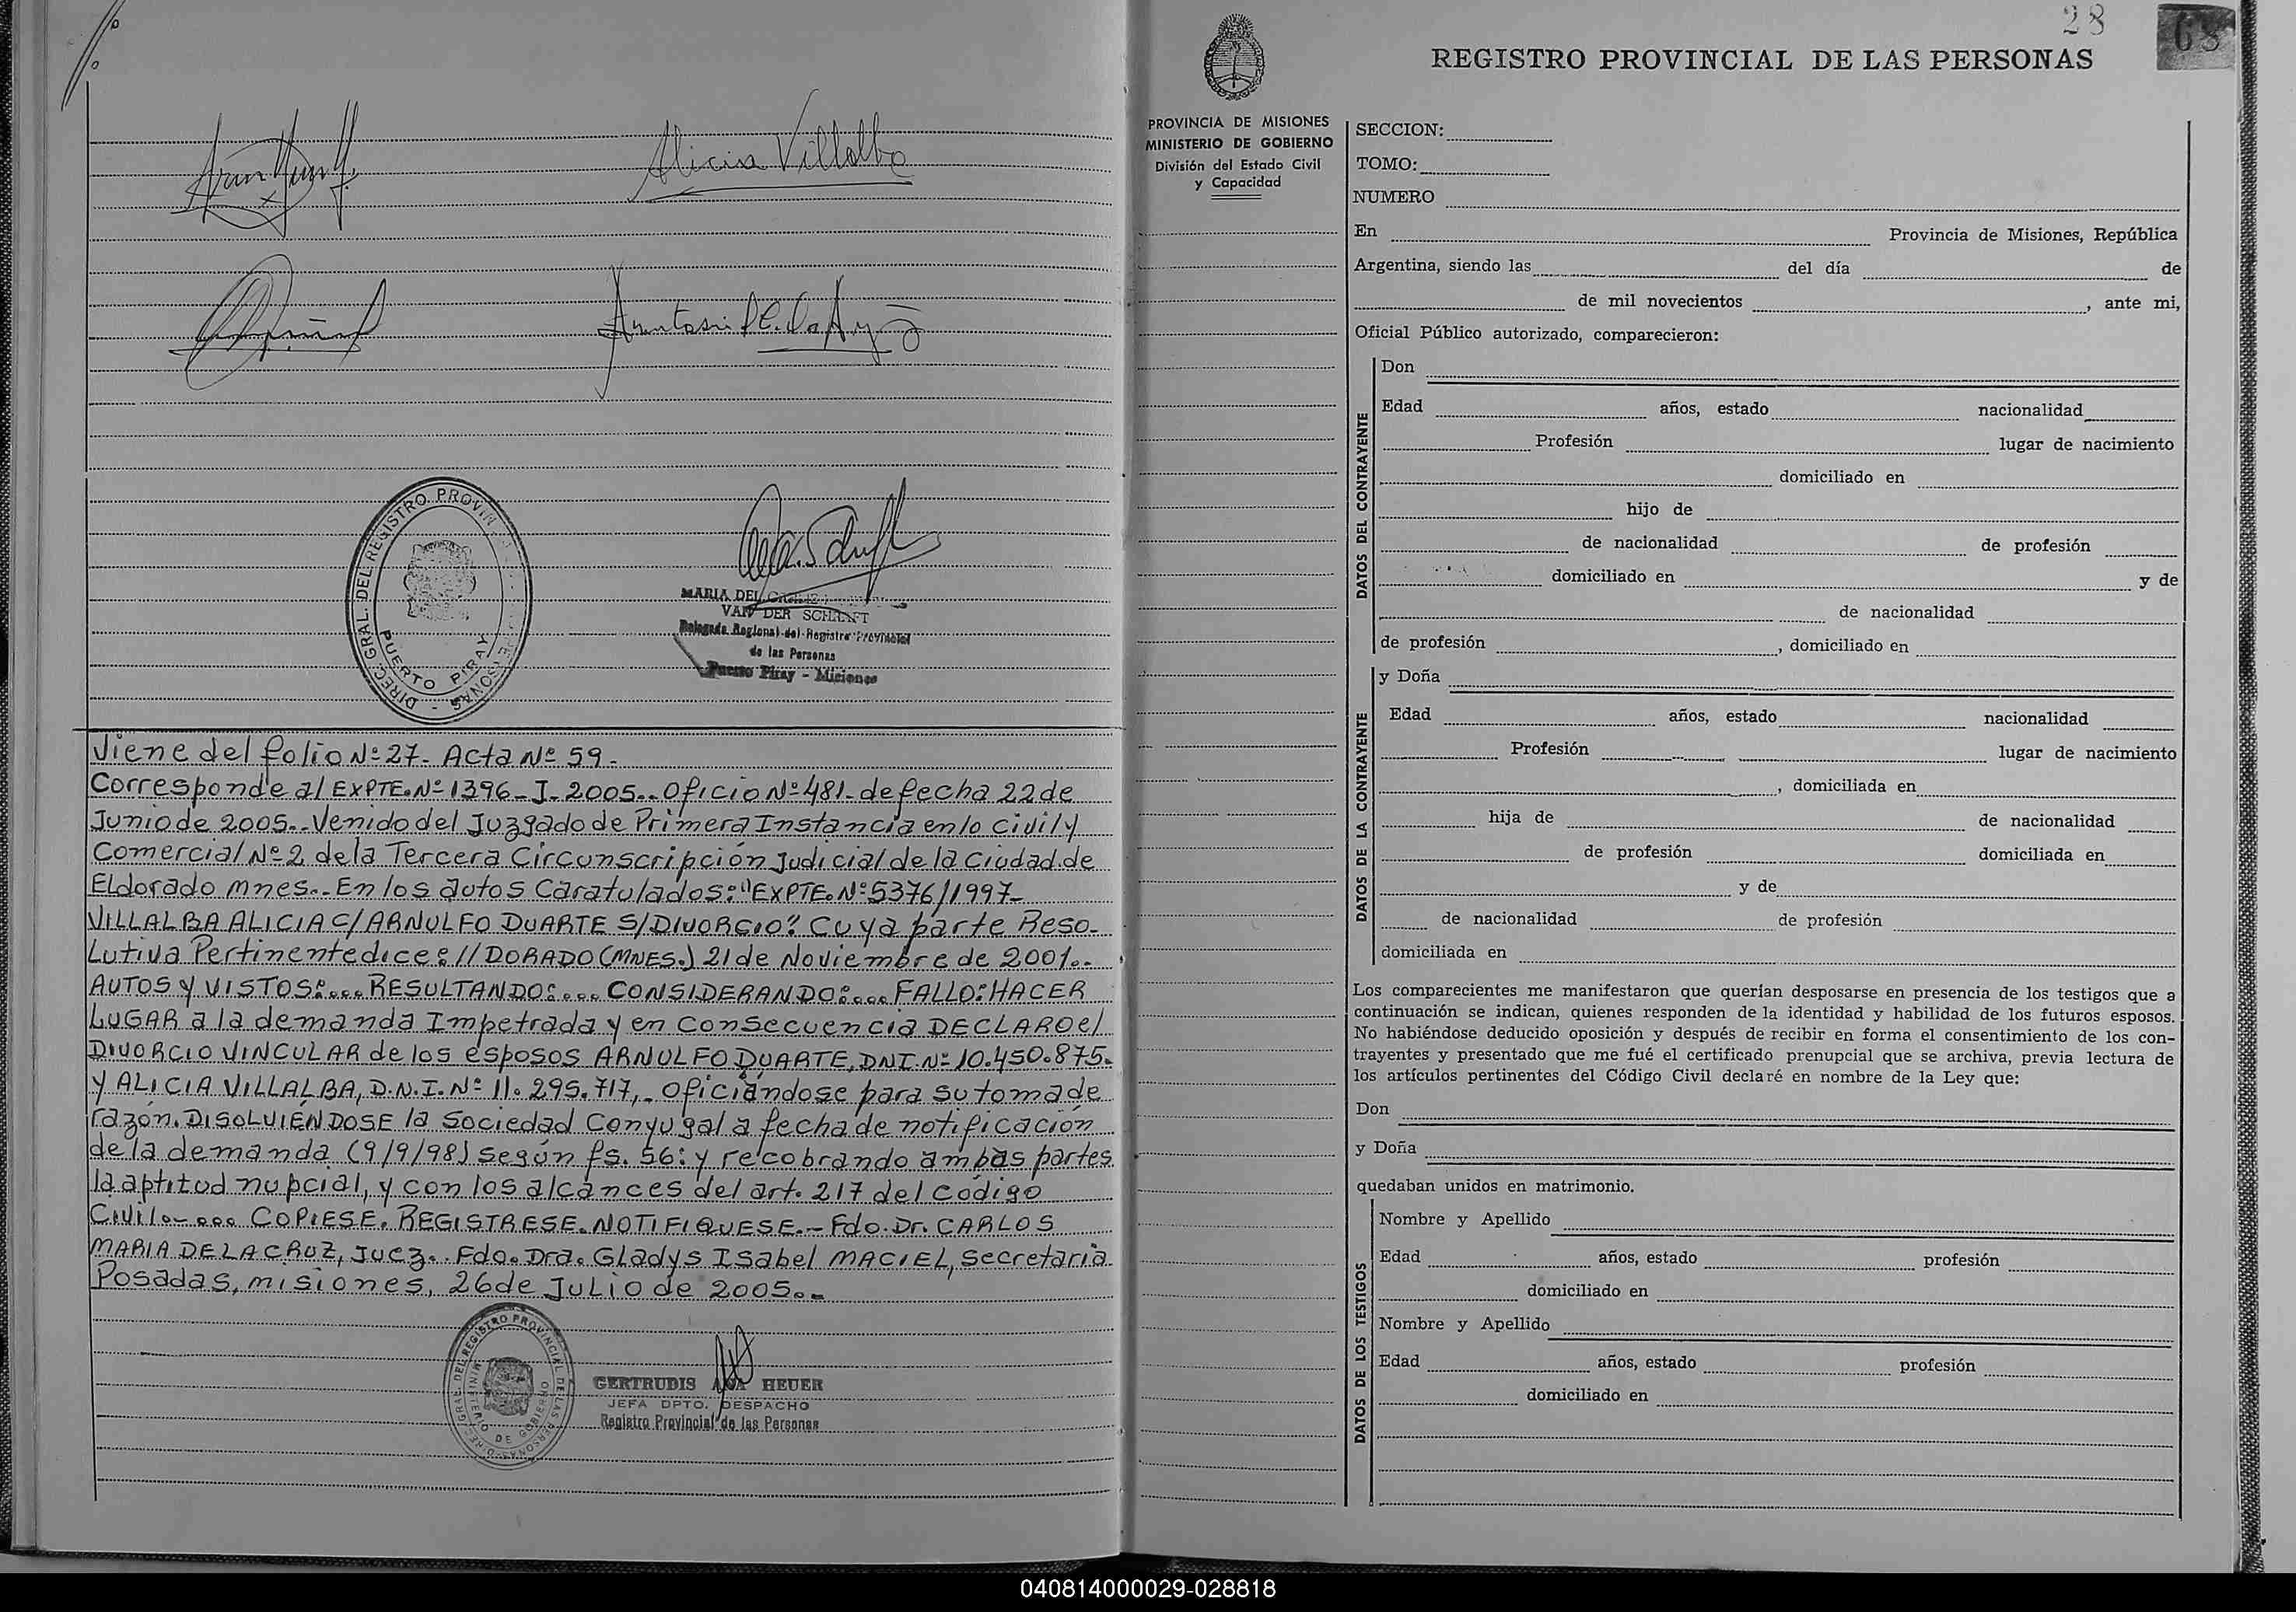 Alicia Villalba
DIREC. GRAL. DEL REGISTRO PROVIN
PUERTO PIRAY
MARIA DEL
VAN DER SCHAFT
Delegada Regional del Registro Provincial
de las Personas
Puerto Piray - Misiones
Viene del folio Nº 27- Acta Nº 59-
Corresponde al EXPTE. Nº 1396-I-2005.. Oficio Nº 481- de fecha 22 de
Junio de 2005.. Venido del Juzgado de Primera Instancia en lo Civil y
Comercial Nº 2 de la Tercera Circunscripción Judicial de la Ciudad de
ELdorado mnes.. En los autos Caratulados: "EXPTE. Nº 5376/1997-
VILLALBA ALICIA C/ ARNULFO DUARTE S/DIVORCIO": Cuya parte Reso-
Lutiva Pertinente dice: //DORADO (MNES.) 21 de Noviembre de 2001.-
AUTOS Y VISTOS:... RESULTANDO:.... CONSIDERANDO:.... FALLO: HACER
LUGAR a la demanda Impetrada y en Consecuencia DECLARO el
DIVORCIO VINCULAR de los esposos ARNULFO DUARTE, DNI. Nº 10.450.875-
Y ALICIA VILLALBA, D.N.I. Nº 11.295.717,- Oficiándose para su toma de
razón. DISOLVIÉNDOSE la Sociedad Conyugal a fecha de notificación
de la demanda (9/9/98) según fs. 56: y recobrando ambas partes
la aptitud nupcial, y con los alcances del art. 217 del Código
Civil.- ... COPIESE. REGISTRESE. NOTIFIQUESE.- Fdo. Dr. CARLOS
MARIA DE LA CRUZ, Juez.. Fdo. Dra. Gladys ISabel MACIEL, Secretaria
Posadas, misiones, 26 de JuLio de 2005.-
DIREC. GRAL. DEL REGISTRO PROVINCIAL DE LAS PERSONAS
MINISTERIO DE GOBIERNO
GERTRUDIS ANA HEUER
JEFA DPTO. DESPACHO
Registro Provincial de las Personas
28
68
REGISTRO PROVINCIAL DE LAS PERSONAS
PROVINCIA DE MISIONES
MINISTERIO DE GOBIERNO
División del Estado Civil
y Capacidad
SECCION:
TOMO:
NUMERO
En Provincia de Misiones, República
Argentina, siendo las del día de
de mil novecientos , ante mi,
Oficial Público autorizado, comparecieron:
DATOS DEL CONTRAYENTE
Don
Edad años, estado nacionalidad
Profesión lugar de nacimiento
domiciliado en
hijo de
de nacionalidad de profesión
domiciliado en y de
de nacionalidad
de profesión , domiciliado en
DATOS DE LA CONTRAYENTE
y Doña
Edad años, estado nacionalidad
Profesión lugar de nacimiento
, domiciliada en
hija de de nacionalidad
de profesión domiciliada en
y de
de nacionalidad de profesión
domiciliada en
Los comparecientes me manifestaron que querían desposarse en presencia de los testigos que a
continuación se indican, quienes responden de la identidad y habilidad de los futuros esposos.
No habiéndose deducido oposición y después de recibir en forma el consentimiento de los con-
trayentes y presentado que me fué el certificado prenupcial que se archiva, previa lectura de
los artículos pertinentes del Código Civil declaré en nombre de la Ley que:
Don
y Doña
quedaban unidos en matrimonio.
DATOS DE LOS TESTIGOS
Nombre y Apellido
Edad años, estado profesión
domiciliado en
Nombre y Apellido
Edad años, estado profesión
domiciliado en
040814000029-028818